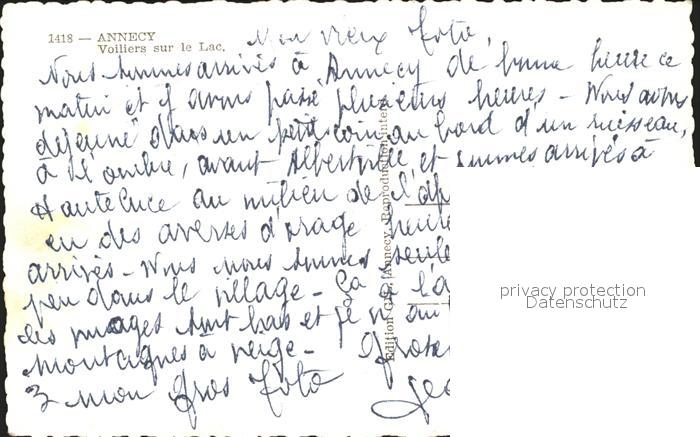 1418 — ANNECY
Voiliers sur le Lac.
Mon vieux Toto,
Nous sommes arrivés à Annecy de bonne heure ce
matin et y avons passé plusieurs heures - Nous avons
déjeuné dans un petit coin au bord d'un ruisseau,
à l'ombre, avant Albertville et sommes arrivés à
Hauteluce au milieu de l'ap
eu des averses d'orage heure
arrivés - Nous nous sommes seule
peu dans le village - Ça
des nuages sont bas et je n'ai
montagnes à neige -
mon gros Toto
Edition GAL, Annecy, Reproduction Inter
privacy protection
Datenschutz